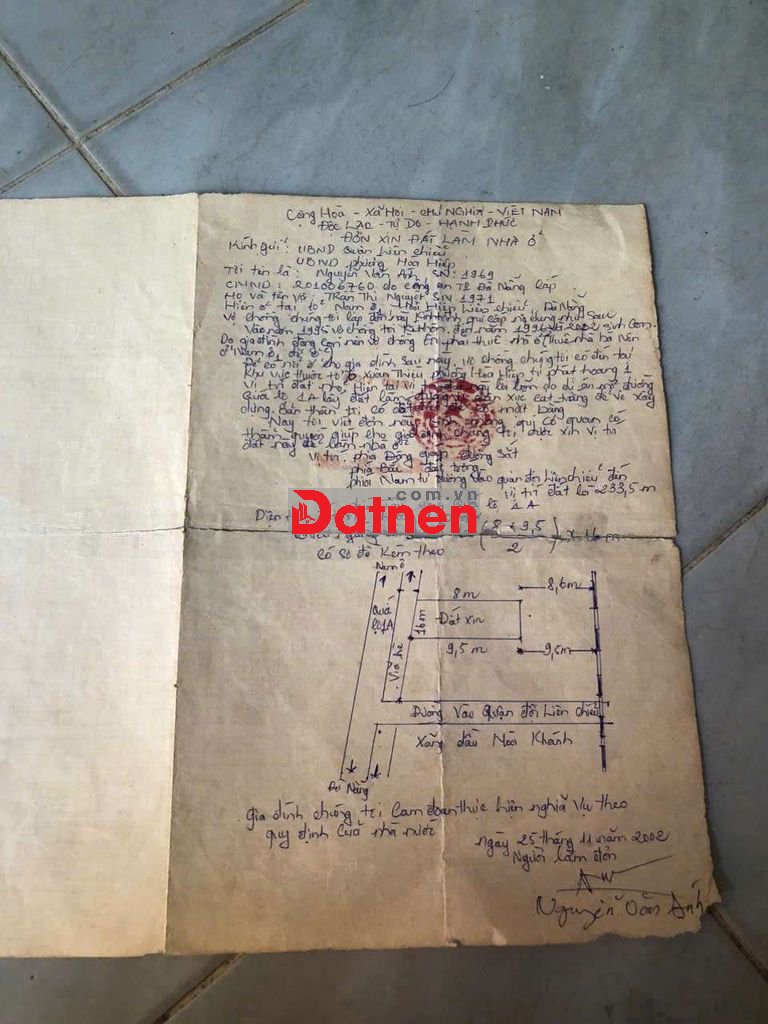 Cộng Hòa - Xã Hội - Chủ Nghĩa - Việt Nam
Độc Lập - Tự Do - Hạnh Phúc
ĐƠN XIN ĐẤT LÀM NHÀ Ở
Kính gửi: UBND Quận Liên Chiểu
UBND phường Hòa Hiệp
Tôi tên là: Nguyễn Văn Anh SN: 1969
CMND: 201006760 do công an TP Đà Nẵng cấp
Họ và tên Vợ: Trần Thị Nguyệt SN 1971
Hiện ở tại tổ Nam ô, Hòa Hiệp, Liên Chiểu, Đà Nẵng
Vợ chồng chúng tôi lập đơn này Kính trình quí cấp nội dung như sau
Vào năm 1995 vợ chồng tôi kết hôn, đến năm 1996 và 2002 sinh con.
Do gia đình đông con nên vợ chồng tôi phải thuê nhà ở
Nam ô 1 để ở
Để có nơi ở cho gia đình sau này, vợ chồng chúng tôi có đến tại
Khu vực thuộc tổ Xuân Thiều, phường Hòa Hiệp
Vị trí đất nhỏ, Hiện tại vị do dự án mở đường
Quốc lộ 1A lấy đất làm đường
dựng. Bản thân tôi có mặt bằng
Nay tôi viết đơn này quí cơ quan có
thẩm quyền giúp cho gia đình chúng tôi được xin vị trí
đất này để làm nhà ở
Vị trí: phía Đông giáp đường sắt
phía Bắc đất trống
phía Nam từ đường vào quận đội Liên Chiểu đến
vị trí đất là 233,5 m
lộ 1A
Diện
.com.vn
Datnen
(8 + 9,5 / 2) x 16 m
Có Sơ đồ Kèm theo
Nam ô
8 m
8,6 m
Quốc lộ 1A
16 m
Đất xin
Vỉa hè
9,5 m
9,5 m
Đường Vào Quận đội Liên Chiểu
Xăng dầu Hòa Khánh
Đà Nẵng
Gia đình chúng tôi cam đoan thực hiện nghĩa vụ theo
quy định của nhà nước
ngày 25 tháng 11 năm 2002
Người làm đơn
Nguyễn Văn Anh